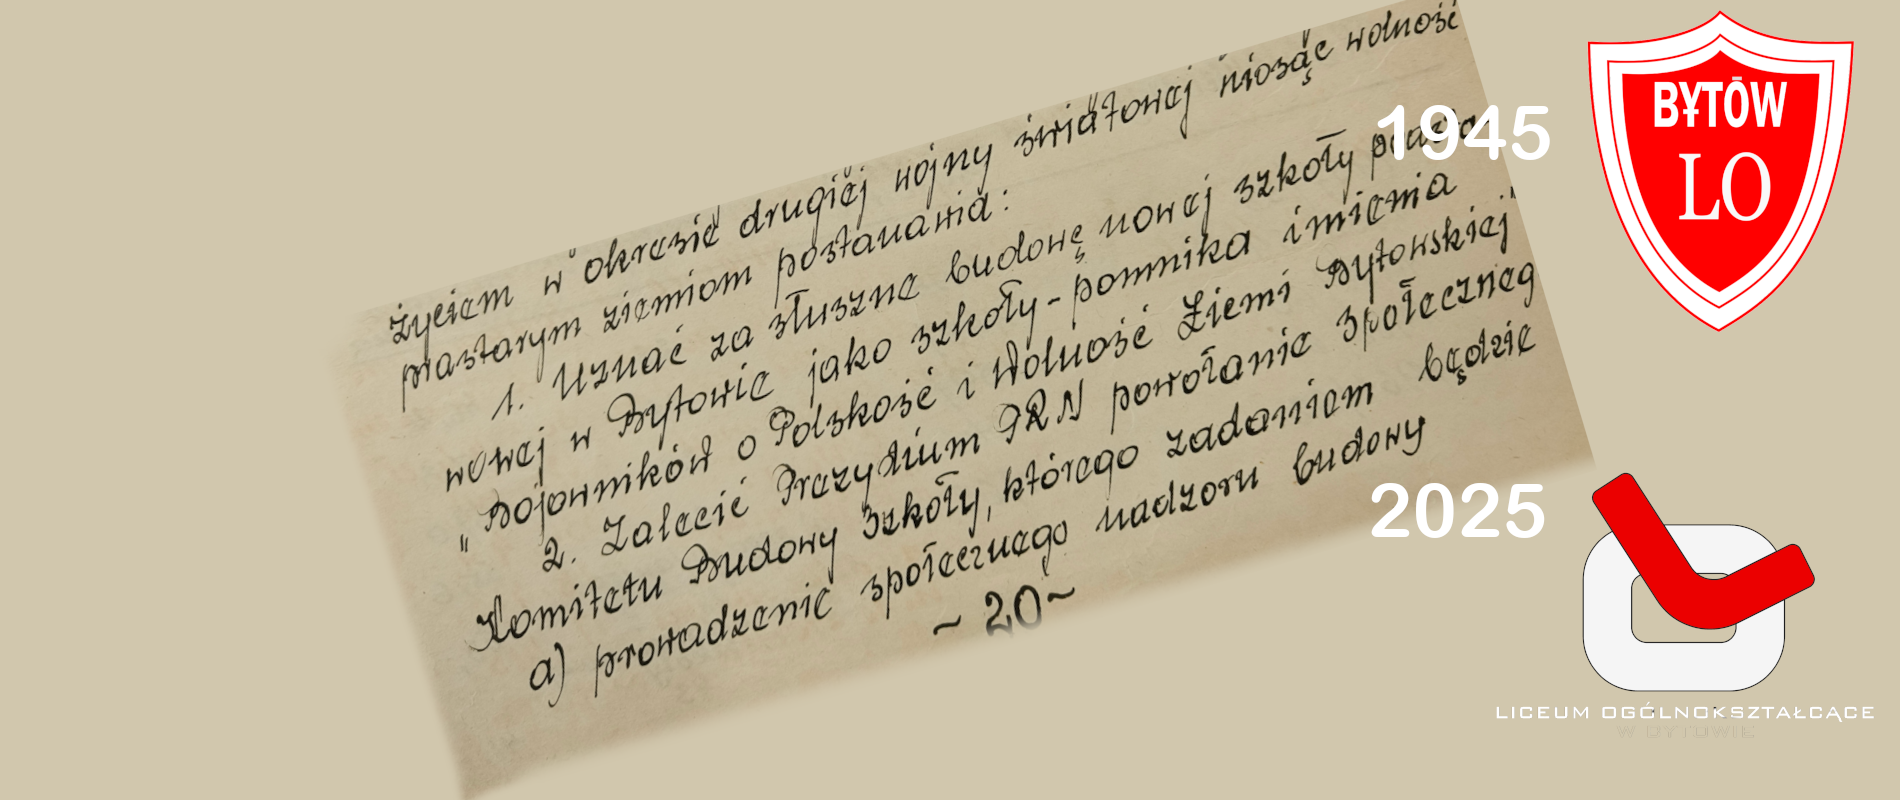 życiem w okresie drugiej wojny światowej niosąc wolność
prastarym ziemiom postanawia:
1. Uznać za słuszne budowę nowej szkoły
wowej w Bytowie jako szkoły-pomnika imienia
"Bojowników o Polskość i Wolność Ziemi Bytowskiej"
2. Zalecić Prezydium PRN powołanie społeczneg
Komitetu Budowy Szkoły, którego zadaniem będzie
a) prowadzenie społecznego nadzoru budowy
~ 20 ~
1945
BYTÓW
LO
2025
LICEUM OGÓLNOKSZTAŁCĄCE
W BYTOWIE